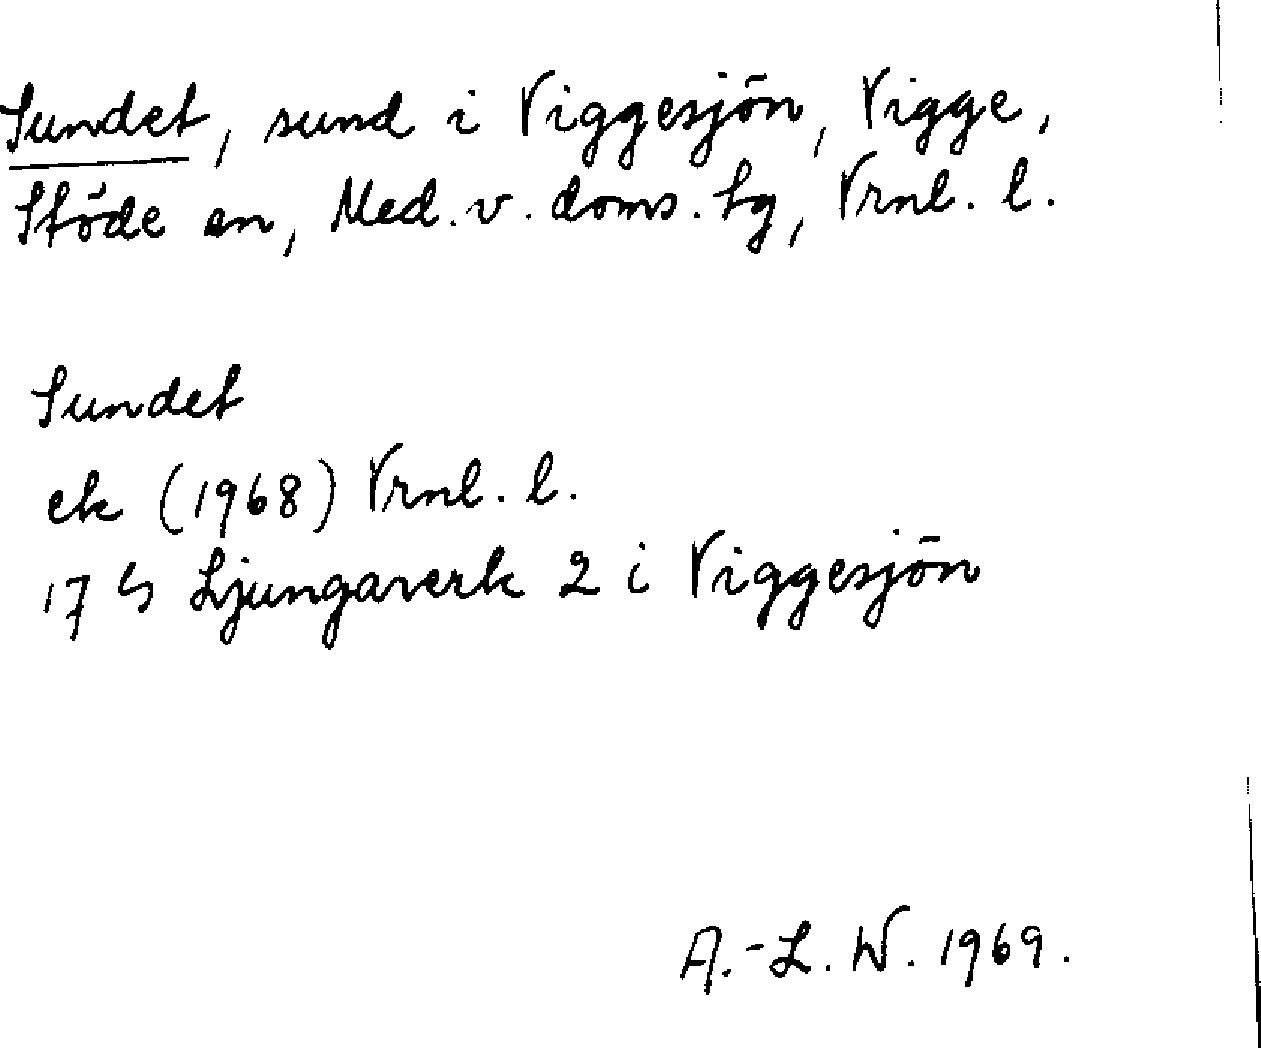 Sundet, sund i Viggesjön, Vigge,
Stöde sn, Med. v. doms. tg, Vrnl. l.
Sundet
ek (1968) Vrnl. l.
17 G Ljungaverk 2 i Viggesjön
A.-L. W. 1969.